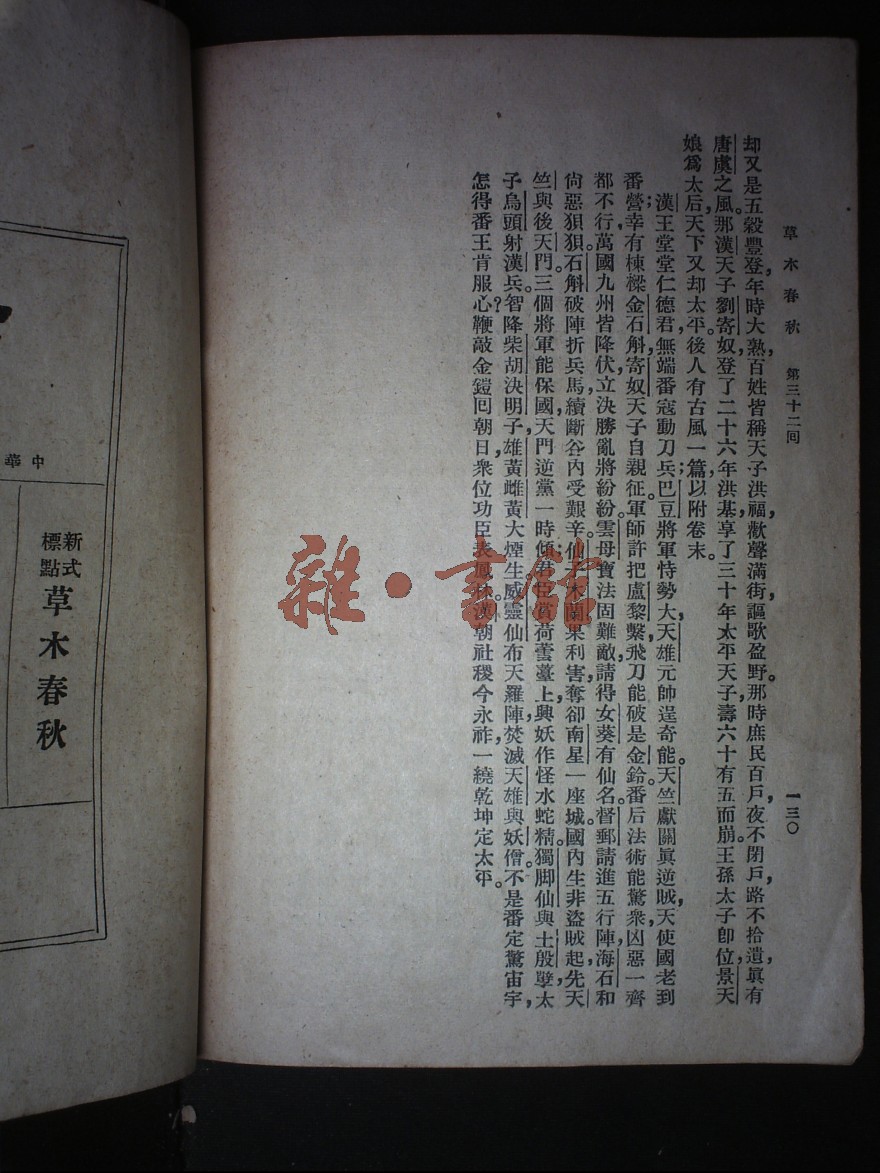 草木春秋 第三十二回 一三〇
却又是五穀豐登,年時大熟,百姓皆稱天子洪福,歡聲滿街,謳歌盈野。那時庶民百戶,夜不閉戶,路不拾遺,眞有
唐虞之風。那漢天子劉寄奴,登了二十六年洪基,享了三十年太平天子,壽六十有五而崩。王孫太子卽位,景天
娘爲太后,天下又却太平。後人有古風一篇,以附卷末。
漢王堂堂仁德君,無端番寇動刀兵;巴豆將軍恃勢大,天雄元帥逞奇能。天竺獻關眞逆賊,天使國老到
番營;幸有棟樑金石斛,寄奴天子自親征。軍師許把盧黎繫,飛刀能破是金鈴。番后法術能驚衆,凶惡一齊
都不行,萬國九州皆降伏,立決勝亂將紛紛。雲母寶法固難敵,請得女葵有仙名。督郵請進五行陣,海石和
尙惡狽狽。石斛破陣折兵馬,續斷谷內受艱辛。仙子木蘭果利害,奪卻南星一座城。國內生非盜賊起,先天
竺與後天門。三個將軍能保國,天門逆黨一時傾;君臣賞荷蕓臺上,興妖作怪水蛇精。獨脚仙與土殷孽,太
子烏頭射漢兵。智降柴胡決明子,雄黃雌黃大煙生。威靈仙布天羅陣,焚滅天雄與妖僧。不是番定驚宙宇,
怎得番王肯服心?鞭敲金鐙回朝日,衆位功臣表鳳林。漢朝社稷今永祚,一繞乾坤定太平。
中華
新式
標點
草木春秋
雜·書館